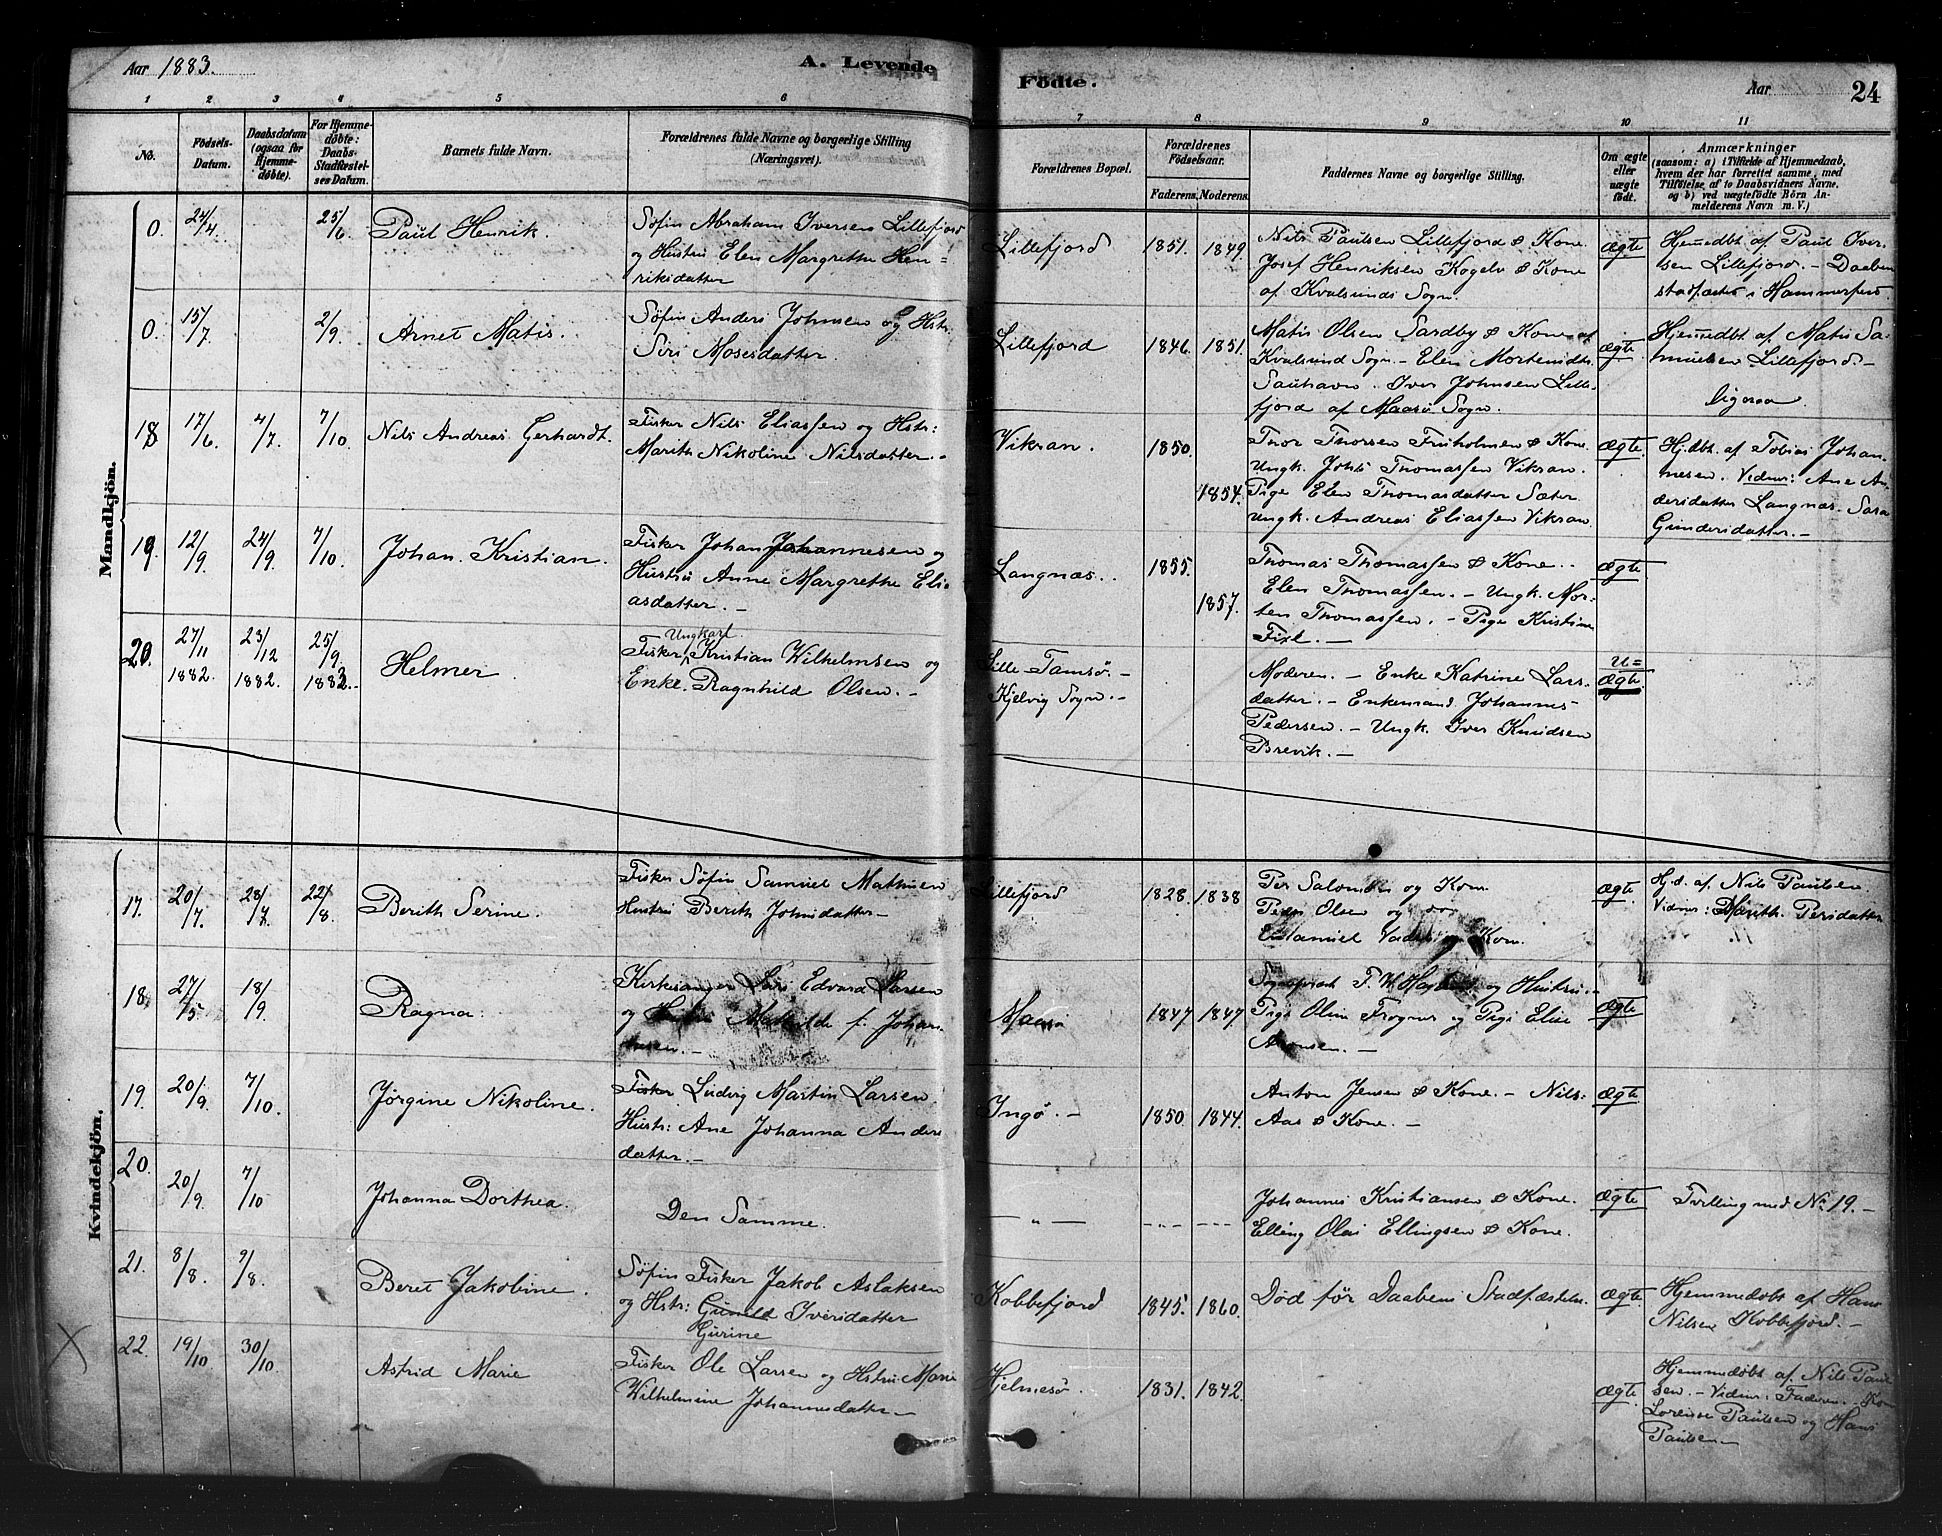 Aar 1883.
A. Levende
Födte.
Aar
24
1 2 3 4 5 6
7 8 9 10 11
No.
Födsels-Datum.
Daabsdatum (ogsaa for Hjemmedöbte).
For Hjemmedöbte: Daabs-Stadfæstelses Datum.
Barnets fulde Navn.
Forældrenes fulde Navne og borgerlige Stilling (Næringsvei).
Forældrenes Bopæl.
Forældrenes Födselsaar.
Faderens. Moderens.
Faddernes Navne og borgerlige Stilling.
Om ægte eller uægte födt.
Anmærkninger
(saasom: a) i Tilfælde af Hjemmedaab,
hvem der har forrettet samme, med
Tilföielse af to Daabsvidners Navne,
og b) ved uægtefödte Börn An-
melderens Navn m. V.)
Mandkjön.
0. 24/4. 25/6. Paul Henrik.
Søfin Abraham Iversen Lillefjord
og Hustru Elen Margrethe Hen-
riksdatter
Lillefjord 1851. 1849.
Nils Paulsen Lillefjord & Kone
Josef Henriksen Kogelv & Kone
af Kvalsunds Sogn.
Ægte
Hjemedbt af Paul Iver-
sen Lillefjord. - Daaben
stadfæstet i Hammerfest.
0. 15/7. 2/9. Arnet Matis.
Søfin Anders Johnsen og Hstr:
Siri Mosesdatter.
Lillefjord 1846. 1851.
Matis Olsen Sardby & Kone af
Kvalsund Sogn. - Elen Mortensdtr.
Sauhavn. Iver Johnsen Lille-
fjord af Maasö Sogn.
Ægte
Hjemedbt af Matis Sa-
muelsen Lillefjord. -
ligesaa
18 17/6. 4/7. 7/10. Nils Andreas Gerhardt.
Fisker Nils Eliassen og Hstr:
Marith Nikoline Nilsdatter. -
Vikran. 1850. 1854.
Thor Thorsen Fruholmen & Kone
Ungk. Johs Thomassen Vikran.
Pige Elen Thomasdatter Sæter
Ungk. Andreas Eliassen Vikran
Ægte.
Hj.dbt. af Tobias Johan-
nesen. Vidner: Ane An-
dersdatter Langnæs. Sara
Gundersdatter. -
19. 12/9. 24/9. 7/10. Johan Kristian.
Fisker Johan Johannesen og
Hustru Anne Margrethe Eli-
asdatter. -
Langnæs. 1855. 1857.
Thomas Thomassen & Kone.
Elen Thomassen. - Ungk. Mor-
ten Thomassen. - Pige Kristine
Fixl. -
Ægte
20. 27/11 1882. 23/12 1882. 25/9 1883. - Helmer.
Ungkarl
Fisker Kristian Wilhelmsen og
Enke Ragnhild Olsen. -
Lille Tamsö. -
Kjelvig Sogn. -
Moderen. - Enke Katrine Lars-
datter. - Enkemand Johannes
Pedersen. - Ungk. Iver Knudsen
Brevik. -
U=
ægte
Kvindekjön.
17. 20/7. 28/7. 22/8. Berith Serine.
Fisker Søfin Samuel Mathisen
Hustru Berith Johnsdatter -
Lillefjord 1828. 1838
Per Salomon og Kone
Peder Olsen og
og Kone.
Ægte.
Hj.d. af Nils Paulsen.
Vidner: Marith Persdatter
18. 27/5. 18/9. Ragna.
Kirkesanger Lars Edvard Larsen
og Hustru Mathilde f. Johan-
nesen. -
Maasø 1847 1847
Sogneprest og Hustru. -
Pige Oline Frogner og Pige Elise
Aronsen. -
Ægte
19. 20/9. 7/10. Jörgine Nikoline.
Fisker Ludvig Martin Larsen.
Hustr: Ane Johanna Anders
datter. -
Ingö. - 1850 1844.
Anton Jensen & Kone. - Nils
Aas & Kone. -
Ægte
20. 20/9 7/10 Johanna Dorthea.
Den Samme.
— „ — - - - - - -
Johannes Kristiansen & Kone.
Elling Olai Ellingsen & Kone.
Ægte
Tvilling med No. 19. -
21. 8/8. 9/8. Beret Jakobine.
Søfin Fisker Jakob Aslaksen
og Hstr: Gunild Iversdatter
Gurine
Kobbefjord 1845. 1860.
Död för Daabens Stadfæstelse.
Ægte.
Hjemmedöbt af Hans
Nilsen Kobbefjord. -
X 22. 19/10 30/10. Astrid Marie
Fisker Ole Larsen og Hstru Marie
Wilhelmine Johannesdatter -
Hjelmesö. 1831. 1842.
Ægte.
Hjemmedöbt af Nils Paul
sen. - Vidner: Faderen. - Kone
Lorense Paulsen og Hans
Paulsen -